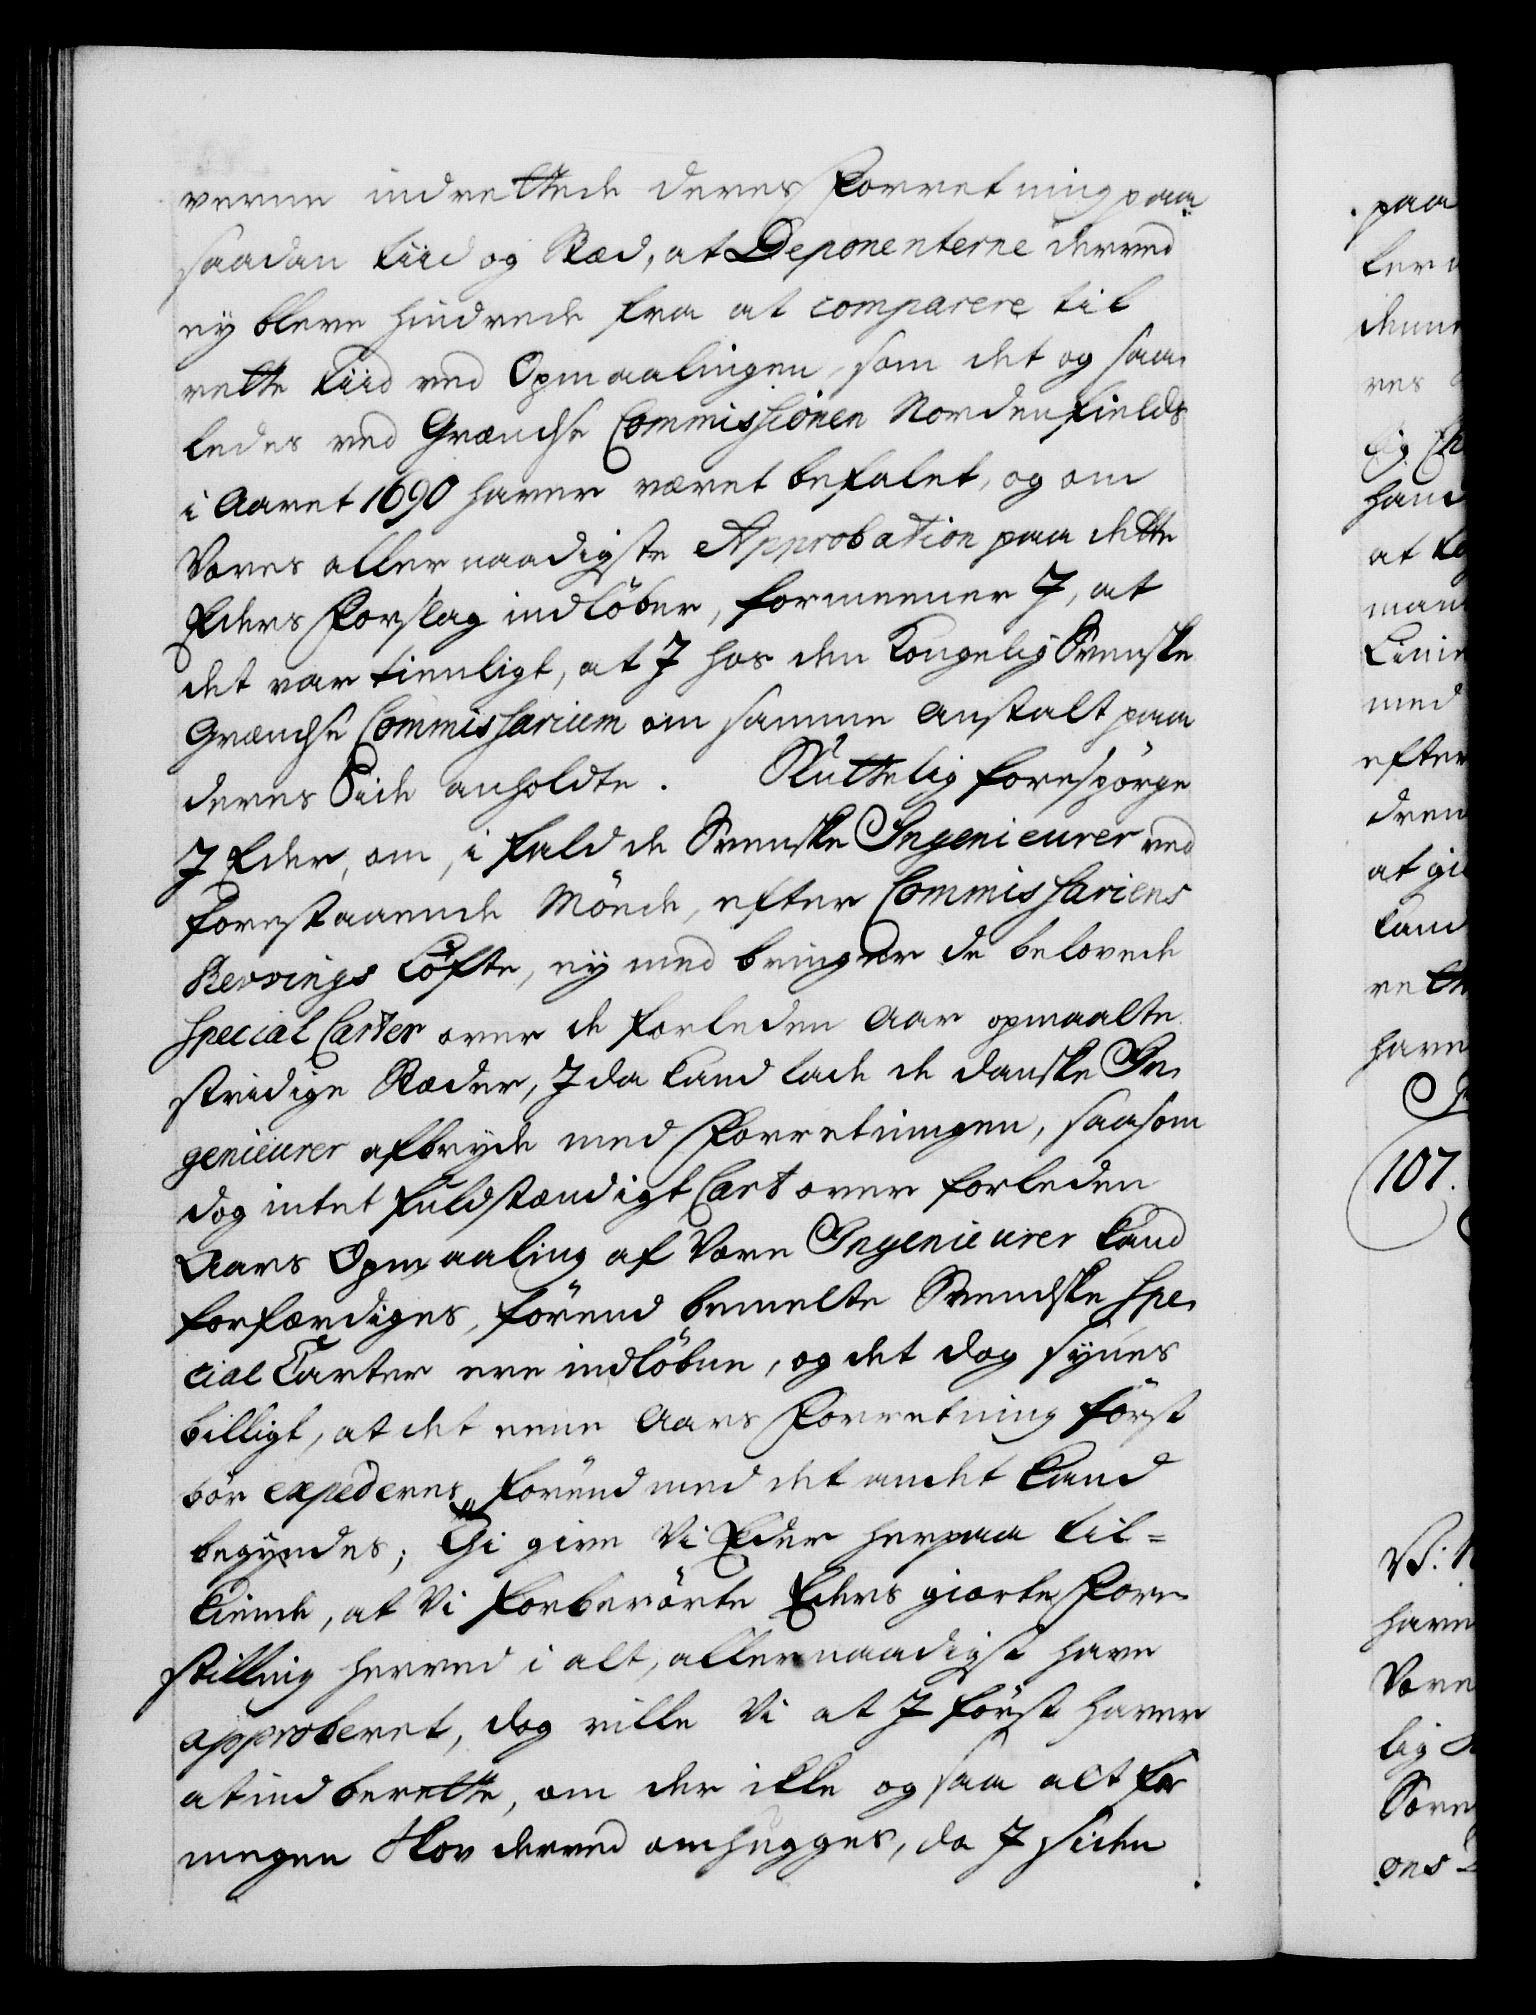 verne indrettede deres Forretning paa
saadan tiid og Stæd, at Deponenterne derved
ey bleve hindrede fra at comparere til
rette tiid ved Opmaalingen, som det og saa
ledes ved Grændse Commissionen Nordenfields
i Aaret 1690 haver været befalet, og om
Vores allernaadigste Approbation paa dette
Eders Forslag indløber, formeener J, at
det var tienligt, at J hos den Kongelig Svenske
Grændse Commissarium om samme anstalt paa
deres Side anholdte. Sluttelig forespørge
J Eder, om, i fald de Svenske Ingenieurer ved
forestaaende Møde, efter Commissariens
Løfte, ey med bringer de belovede
Special Carter over de forleden Aar opmaalte
stridige Stæder, J da kand lade de danske In-
genieurer afbryde med Forretningen, saasom
dog intet fuldstændigt Cart over forleden
Aars Opmaaling af Vore Ingenieurer kand
forfærdiges, førend bemelte Svendske Spe-
cial Carter ere indløbne, og det dog synes
billigt, at det eene Aars Forretning først
bør expederes, førend med det andet kand
begyndes; Thi give Vi Eder herpaa til=
kiende, at Vi forberørte Eders giorte Fore
stilling herved i alt, allernaadigst have
approberet, dog ville Vi at J først haver
at indberette, om der ikke og saa alt for
megen Skov derved omhugges, da J siden
paa
med
efter
at
107.